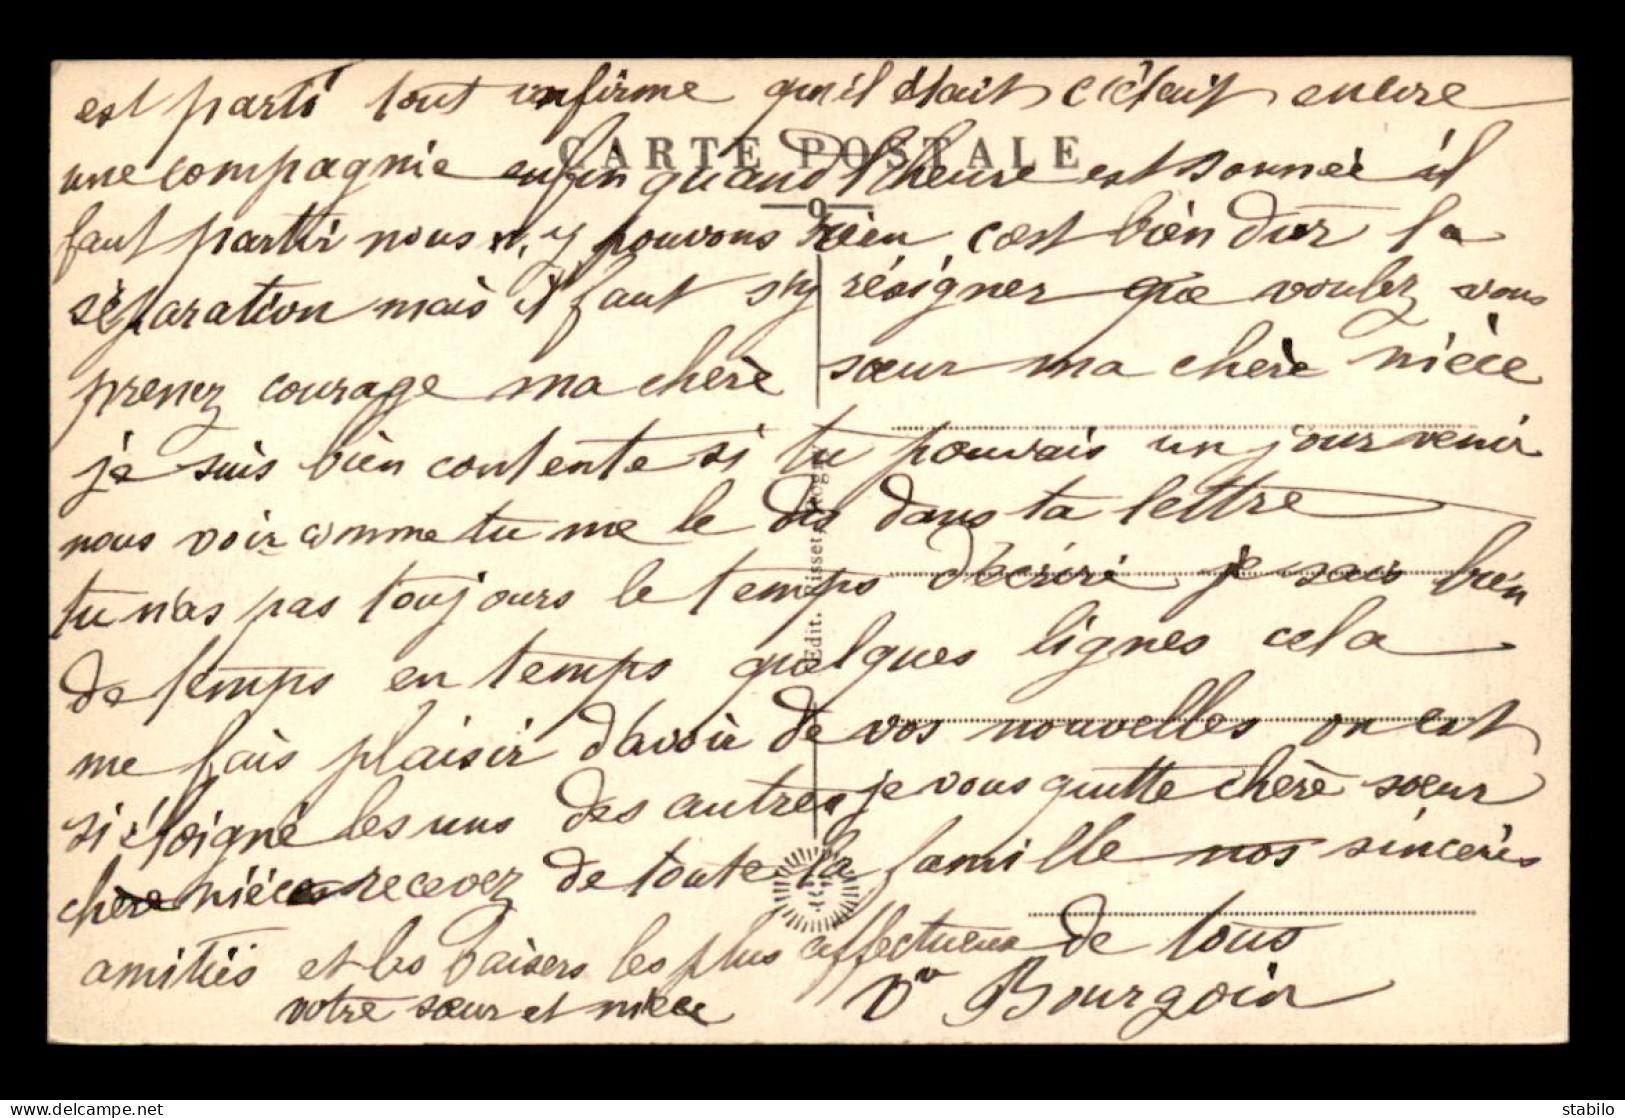 est parti tout infirme qu'il était c'était encore
CARTE POSTALE
une compagnie enfin quand l'heure est sonnée il
9
faut partir nous n'y pouvons rien c'est bien dur la
séparation mais il faut s'y résigner que voulez vous
prenez courage ma cherè sœur ma chère nièce
je suis bien contente si tu pouvais un jour venir
nous voir comme tu me le dis dans ta lettre
tu n'as pas toujours le temps d'écriri je sais bien
de temps en temps quelques lignes cela
me fais plaisir d'avoir de vos nouvelles on est
si éloigné les uns des autres je vous quitte cherè sœur
chère nièce recevez de toute la famille nos sincerès
amitiés et les baisers les plus affectueux de tous
votre sœur et nièce Vve Bourgoin
Edit.
stabilo